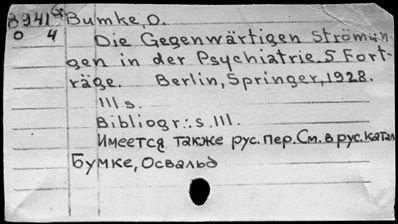 B941 G Bumke, O.
0 4 Die Gegenwärtigen Strömun
gen in der Psychiatrie. 5 Fort-
räge. Berlin, Springer, 1928.
111 s.
Bibliogr.: s. 111.
Имеется также рус. пер. См. в рус. катал
Бумке, Освальд